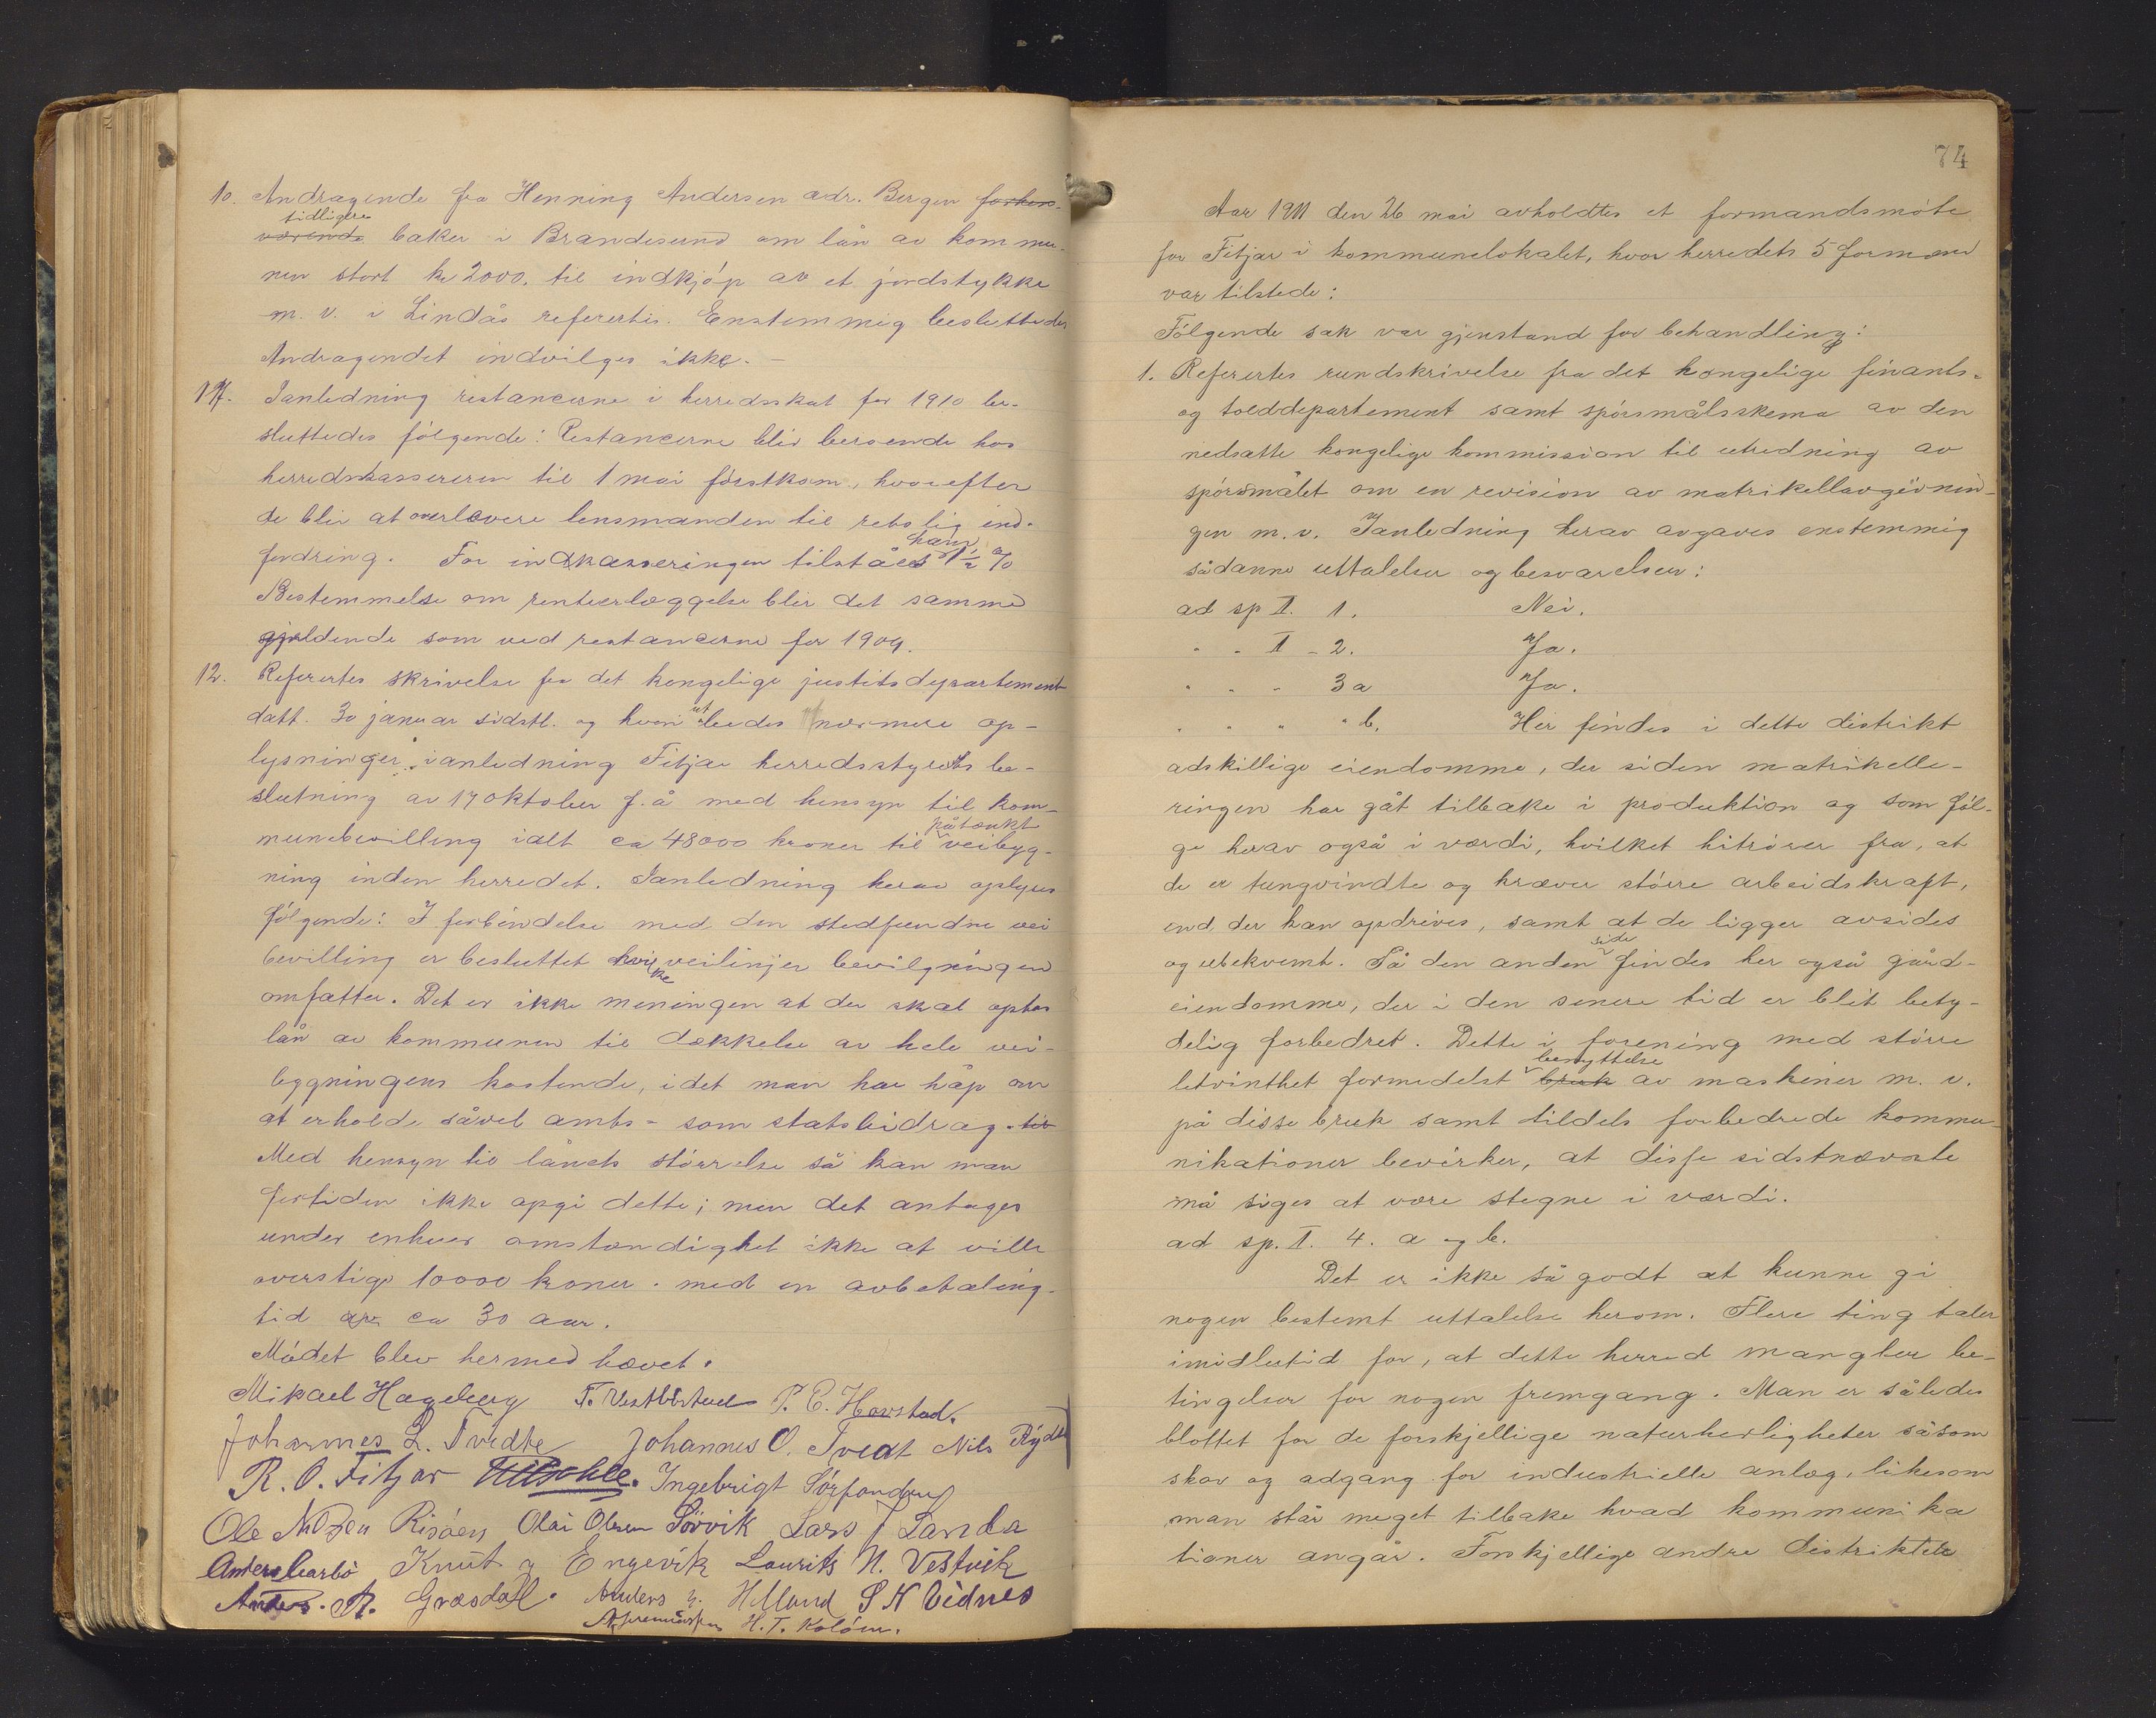 10. Andragende fra Henning Andersen adr. Bergen forhen-
tidligere
værende baker i Brandesund om lån av kommu-
nen stort kr 2000. til indkjöp av et jordstykke
m. v. i Lindås refertes. Enstemmig besluttedes
Andragendet indvilges ikke. -
11. Ianledning restancerne i herredsskat for 1910 be-
sluttedes fölgende: Restancerne blir beroende hos
herredskassereren til 1 mai förstkom., hvorefter
de blir at overlevere lensmanden til retslig ind-
fordring. For indkasseringen tilståes ham 1½ %
Bestemmelse om renteerlæggelse blir det samme
gjeldende som ved restancerne for 1909.
12. Refertes skrivelse fra det kongelige justitsdepartement
datt. 30 januar sidstl. og hvori utbedes nærmere op-
lysninger i anledning Fitjar herredsstyrets be-
slutning av 17 oktober f. å med hensyn til kom-
munebevilling ialt ca 48000 kroner til påtænkt veibyg-
ning inden herredet. Ianledning herav oplyses
fölgende: I forbindelse med den stedfundne vei
bevilling er besluttet hvilke veilinjer bevilgningen
omfatter. Det er ikke meningen at der skal optas
lån av kommunen til dækkelse av hele vei-
bygningens kostende, idet man har håp om
at erholde såvel amts- som statsbidrag. til
Med hensyn til lånets störrelse så kan man
fortiden ikke opgi dette; men det antages
under enhver omstændighet ikke at ville
overstige 10000 kroner. med en avbetaling-
tid av ca 30 aar.
Mödet blev hermed hævet.
Mikael Hageberg T. Vestböstad P. E. Havstad.
Johannes L. Tvedte Johannes O. Tvedt Nils Rydt
R. O. Fitjar Ingebrigt Sörfonden
Ole Nilsen Risöen Olai Olsen Sörvik Lars J Landa
Anders Aarbö Knut Engevik Laurits N. Vestvik
Anders. A. Græsdal. Anders H. Helland S N Vidnes
H. T. Kolöen.
74
Aar 1911 den 26 mai avholdtes et formandsmöte
for Fitjar i kommunelokalet, hvor herredets 5 formænd
var tilstede:
Fölgende sak var gjenstand for behandling:
1. Refertes rundskrivelse fra det kongelige finants-
og tolddepartement samt spörsmålsskema av den
nedsatte kongelige kommission til utredning av
spörsmålet om en revision av matrikellovgivnin-
gen m. v. Ianledning herav avgaves enstemmig
sådanne uttalelser og besvarelser:
ad sp II. 1. Nei.
" " II - 2. Ja.
" " " 3 a Ja.
" " " " b. Her findes i dette distrikt
adskillige eiendomme, der siden matrikelle-
ringen har gåt tilbake i produktion og som föl-
ge herav også i værdi, hvilket hitrörer fra, at
de er tungvindte og kræver större arbeidskraft,
end der kan opdrives, samt at de ligger avsides
og ubekvemt. På den anden side findes her også gård-
eiendomme, der i den senere tid er blit bety-
delig forbedret. Dette i forening med större
letvinthet formedelst benyttelse bruk av maskiner m. v.
på disse bruk samt tildels forbedrede kommu-
nikationer bevirker, at disse sidstnævnte
må siges at være stegne i værdi.
ad sp. II. 4. a og b.
Det er ikke så godt at kunne gi
nogen bestemt uttalelse herom. Flere ting taler
imidlertid for, at dette herred mangler be-
tingelser for nogen fremgang. Man er således
blottet for de forskjellige naturherligheter såsom
skov og adgang for industrielle anlæg, likesom
man står meget tilbake hvad kommunika
tioner angår. Forskjellige andre distrikter